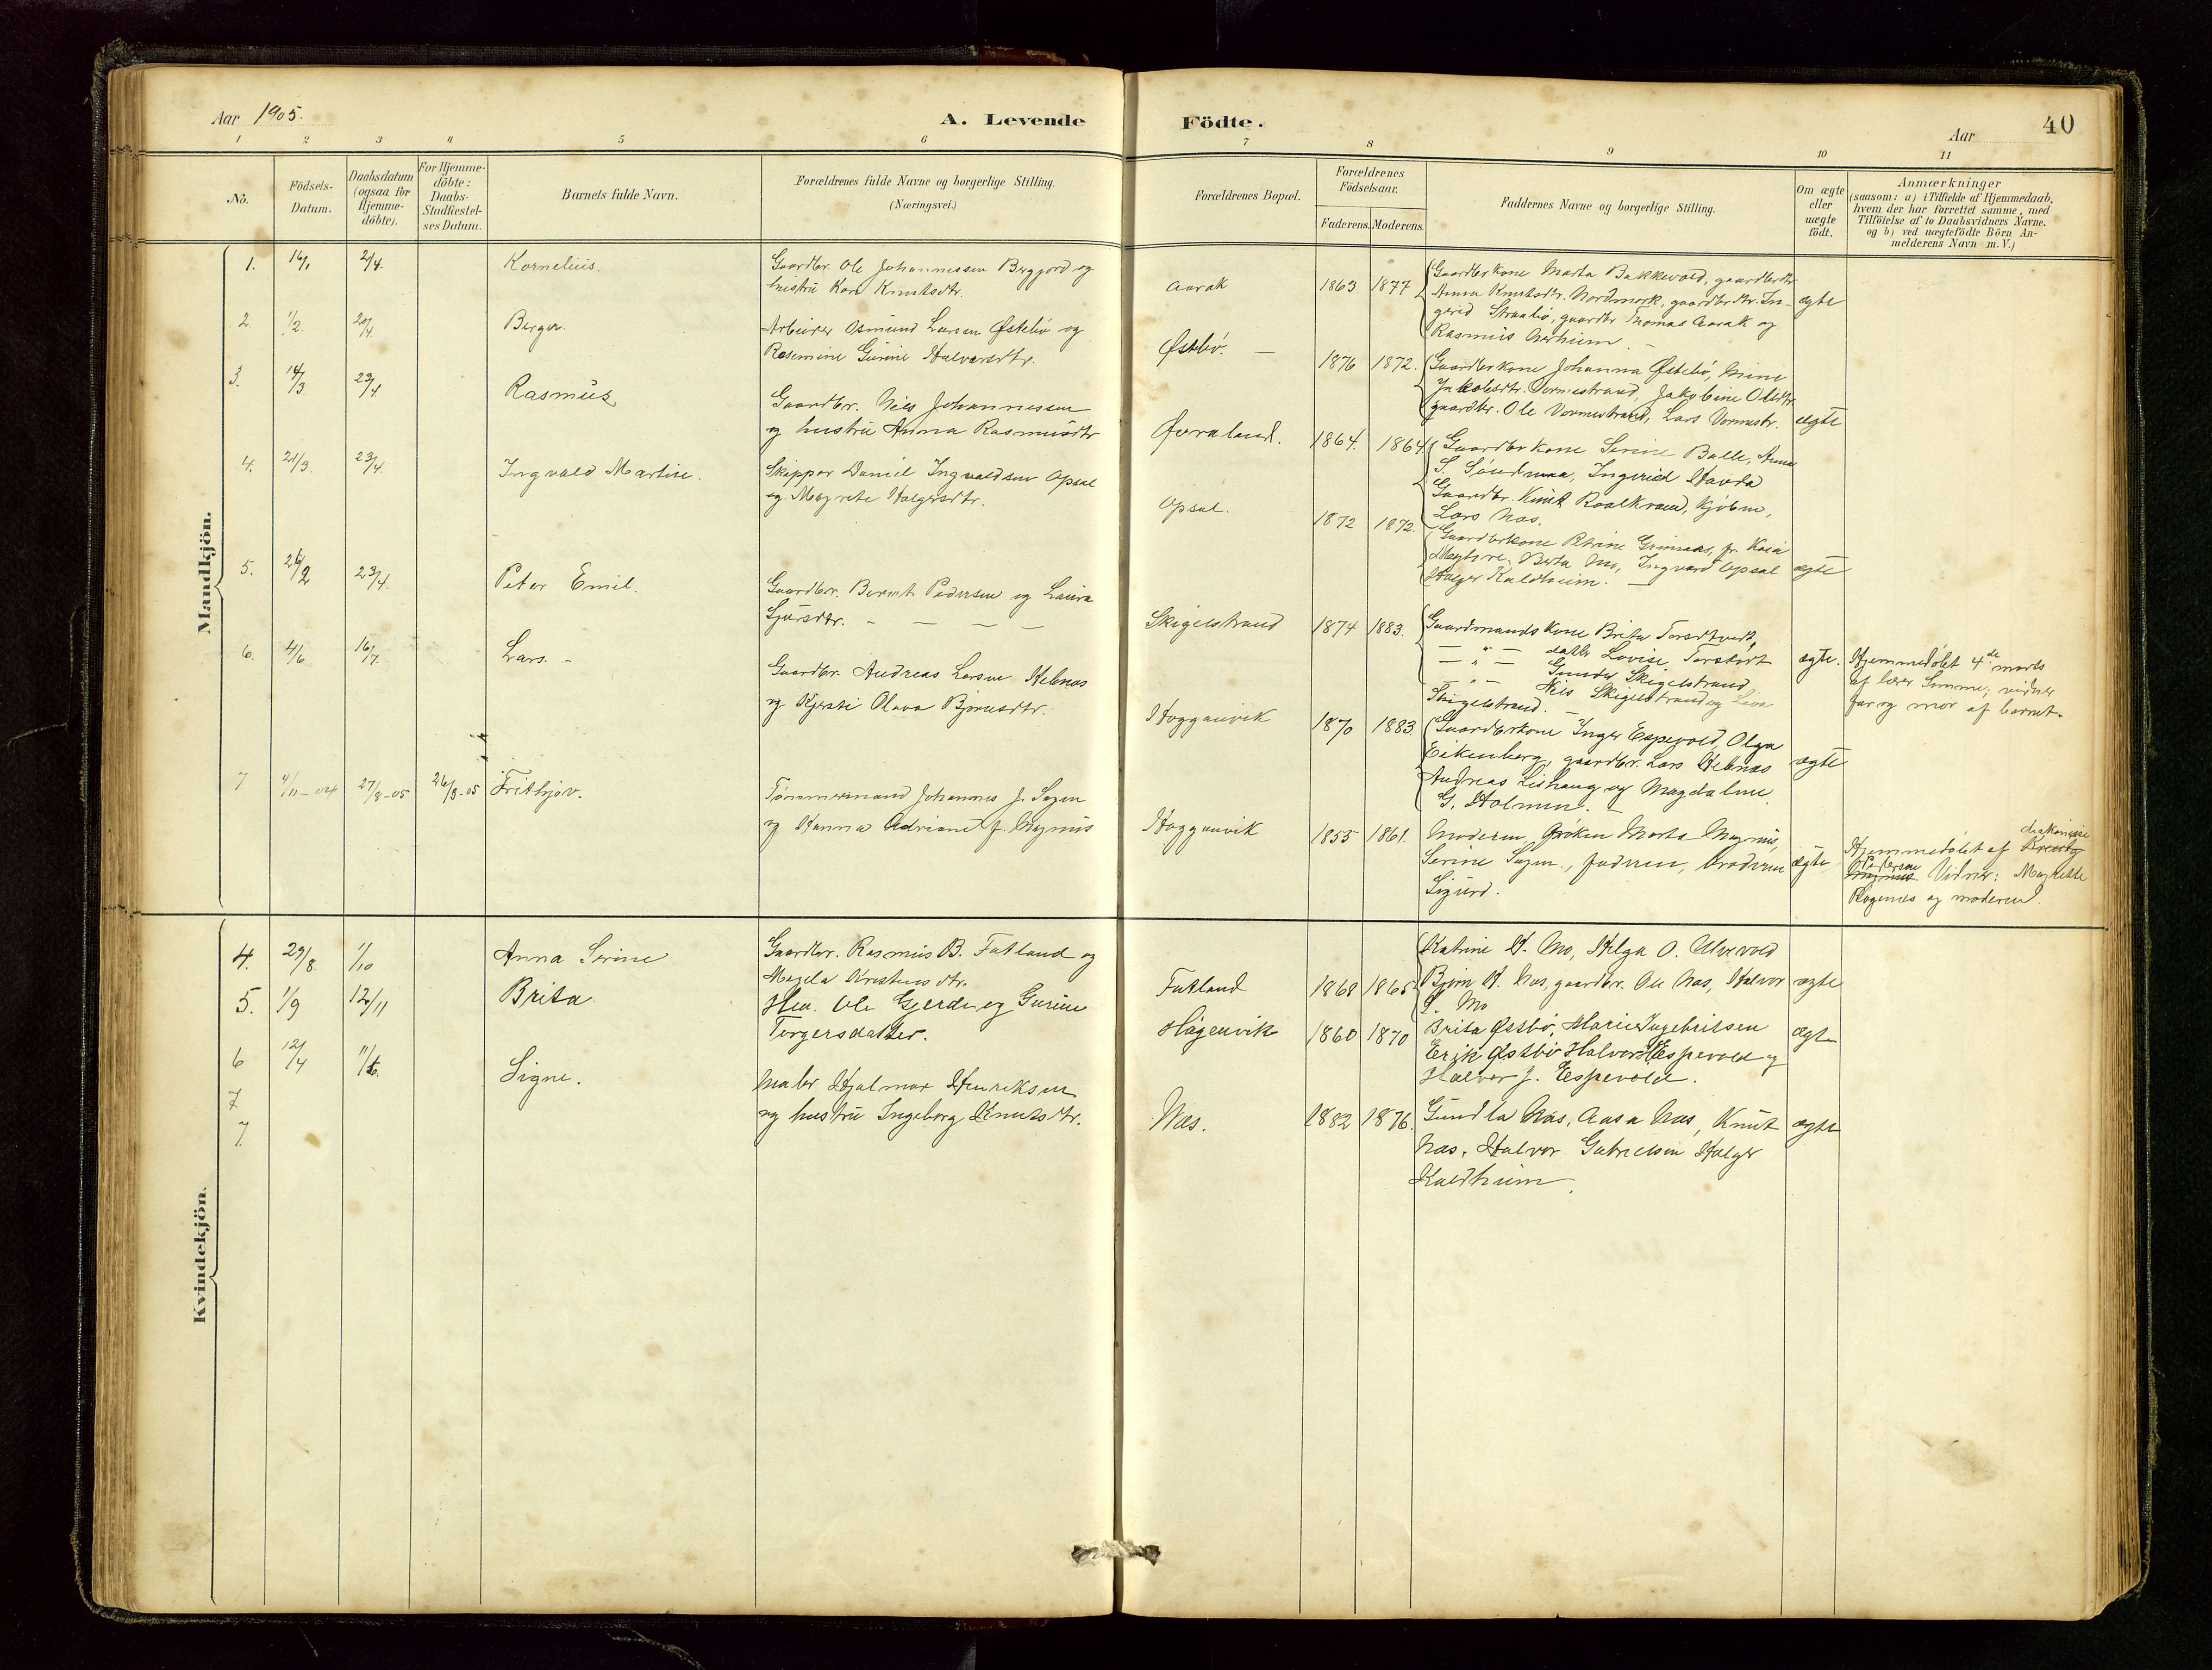 Aar 1905.
A. Levende Födte.
Aar
40
1 2 3 4 5 6 7 8 9 10 11
No.
Födsels-
Datum.
Daabsdatum
(ogsaa for
Hjemme-
döbte).
For Hjemme-
döbte:
Daabs-
Stadfæstel-
ses Datum.
Barnets fulde Navn.
Forældrenes fulde Navne og borgerlige Stilling.
(Næringsvei.)
Forældrenes Bopæl.
Forældrenes
Födselsaar.
Faderens. Moderens.
Faddernes Navne og borgerlige Stilling.
Om ægte
eller
uægte
födt.
Anmærkninger
(saasom: a) i Tilfælde af Hjemmedaab,
hvem der har forrettet samme, med
Tilföielse af to Daabsvidners Navne,
og b) ved uægtefödte Börn An-
melderens Navn m. V.)
Mandkjön.
1. 16/1 2/4. Kornelius.
Gaardbr. Ole Johannessen Berggord og
hustru Kari Knutsdtr.
Aarak 1863 1877
Gaardbrkone Marta Bakkevold, gaardbrdtr
Anna Knutsdtr. Nordmork, gaardbrdtr. In-
gerid Straabø, gaardbr Thomas Aarak og
Rasmus
ægte
2. 1/2. 20/4. Birger.
Arbeider Osmund Larsen Østebø og
Rasmine Gurine Halvorsdtr.
Østbø. — 1876 1872.
Gaardbrkone Johanna Østebø, Mine
Jakobsdtr. Vormestrand, Jakobine Olsdtr
gaardbr. Ole Vormestrand, Lars Vormestr.
ægte
3. 14/3 23/4. Rasmus
Gaardbr. Nils Johannessen
og hustru Anna Rasmusdtr
1864. 1864
Gaardbrkone Serine Balle, Anna
S. Ingerid Havda
Gaardbr. Knut Kjöbm,
Lars Næs.
4. 21/3. 23/4. Ingvald Martin.
Skipper Daniel Ingvaldsen Opsal
og Magrete Holgersdtr.
Opsal. 1872 1872.
Gaardbrkone Petrine Grimaas, fr. Kaia
Berta Mo, Ingvard Opsal
Holger Kaldheim. —
ægte
5. 26/2 23/4. Peter Emil.
Gaardbr. Bernt Pedersen og Laura
Sjursdtr. — — — —
Skigelstrand 1874 1883.
Gaardmandskone Brita
— " — datter Lovise
— " — Gunder Skigelstrand
— " — Nils Skigelstrand og Lava
Skigelstrand. —
ægte.
Hjemmedøbt 4de marts
af lærer Simme; vidner
far og mor af barnet.
6. 4/6 16/7. Lars. —
Gaardbr. Andreas Larsen Hebnes
og Kjersti Olava Bjørnsdtr.
Hogganvik 1870 1883.
Gaardbrkone Inger Espevold, Olga
Eikenberg, gaardbr. Lars Hebnes
Andreas Lishaug og Magdalene
G. Holmen. —
ægte
7 4/11-04 27/8-05 26/3-05 Frithjov.
Tømmermand Johannes J. Sagen
og Hanna Adriane f. Magnus
Hogganvik 1855 1861.
Moderen, frøken Marta Magnus,
Serine Sagen, faderen, broderen
Sigurd.
ægte
Hjemmedøbt af diakonisse
Pedersen Vidner: Magrette
Ragenes og moderen.
Kvindekjön.
4. 29/8. 1/10 Anna Serine
Gaardbr. Rasmus B. Fatland og
Magela Kristensdtr.
Fatland 1868 1865
Katrine H. Mo, Helga O. Alvevold
Bjørn H. Næs, gaardbr. Ole Næs, Halvor
S. Mo
ægte
5. 1/9 12/11 Brita
Hea. Ole Gjerde og Gurine
Torgersdatter.
Hågenvik 1860 1870
Brita Østbø, Marie Ingebritsen
Erik Østbø Halvor H Espevold og
Halvor J. Espevold.
ægte
6 12/4 11/6. Signe.
Maler Hjalmar Henriksen
og hustru Ingeborg Knutsdtr.
Næs. 1882 1876.
Gundla Næs, Aasa Næs, Knut
Næs, Halvor Gabrielsen Holger
Kaldheim.
ægte
7
7.